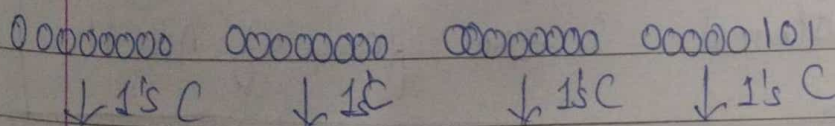 00000000 00000000 00000000 00000101
↓ 1's C ↓ 1's C ↓ 1's C ↓ 1's C